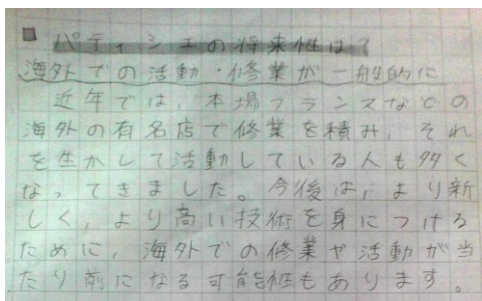 ■ パティシエの将来性は?
海外での活動・修業が一般的に
近年では,本場フランスなどの
海外の有名店で修業を積み,それ
を生かして活動している人も多く
なってきました。今後は,より新
しく,より高い技術を身につける
ために,海外での修業や活動が当
たり前になる可能性もあります。